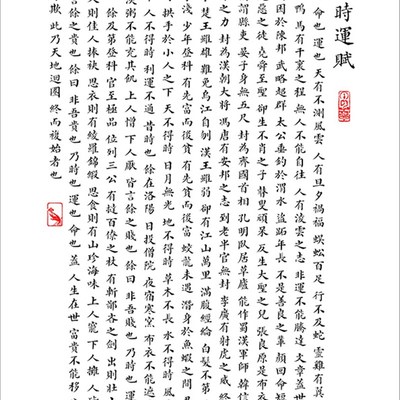 時運賦
命也 運也 天有不測風雲 人有旦夕禍福 蜈蚣百足 行不及蛇 靈雞有翼
鴨 馬有千里之程 無人不能自往 人有淩雲之志 非運不能騰達 文章蓋世
困於陳邦 武略超群 太公垂釣於渭水 盜跖年長 不是善良之輩 顏回命短
惡之徒 堯舜至聖 卻生不肖之子 瞽叟頑呆 反生大聖之兒 張良原是布衣
謂縣吏 晏子身無五尺 封為齊國首相 孔明臥居草廬 能作蜀漢軍師 韓信
之力 封為漢朝大將 馮唐有安邦之志 到老半官無封 李廣有射虎之威 終
楚王雖雄 難免烏江自刎 漢王雖弱 卻有江山萬里 滿腹經綸 白髮不第
淺 少年登科 有先富而後貧 有先貧而後富 蛟龍未遇 潛身於魚蝦之間
拱手於小人之下 天不得時 日月無光 地不得時 草木不長 水不得時 風
人不得時 利運不通 昔時也 餘在洛陽 日投僧院 夜宿寒窯 布衣不能遮
粥不能充其飢 上人憎 下人厭 皆言餘之賤也 餘曰 非吾賤也 乃時也 運也
餘及第登科 官至極品 位列三公 有撻百僚之杖 有斬鄙吝之劍 出則壯士
則佳人捧袂 思衣則有綾羅錦緞 思食則有山珍海味 上人寵 下人擁 人
言餘之貴也 餘曰 非吾貴也 乃時也 運也 命也 蓋人生在世 富貴不能移
欺 此乃天地迴圈 終而複始者也